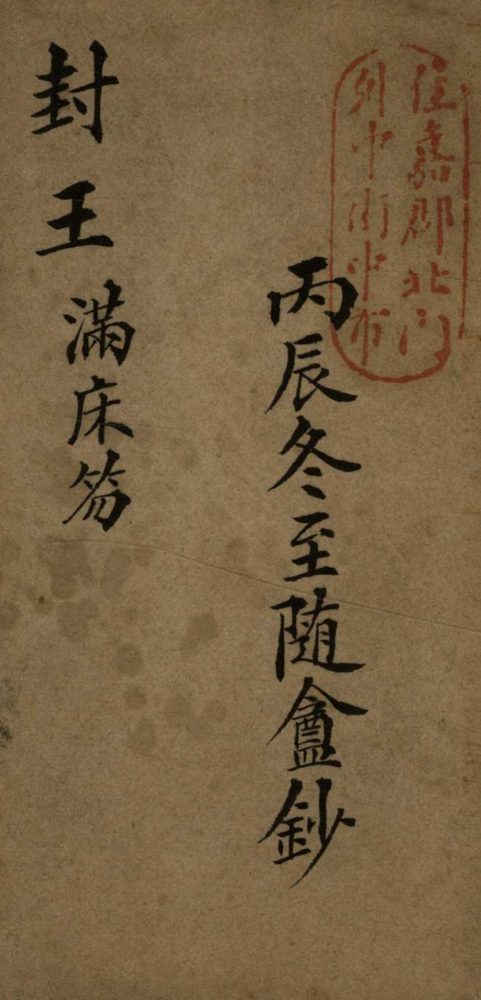 住嘉郡北门
外中街中市
丙辰冬至随盦鈔
封王
滿床笏